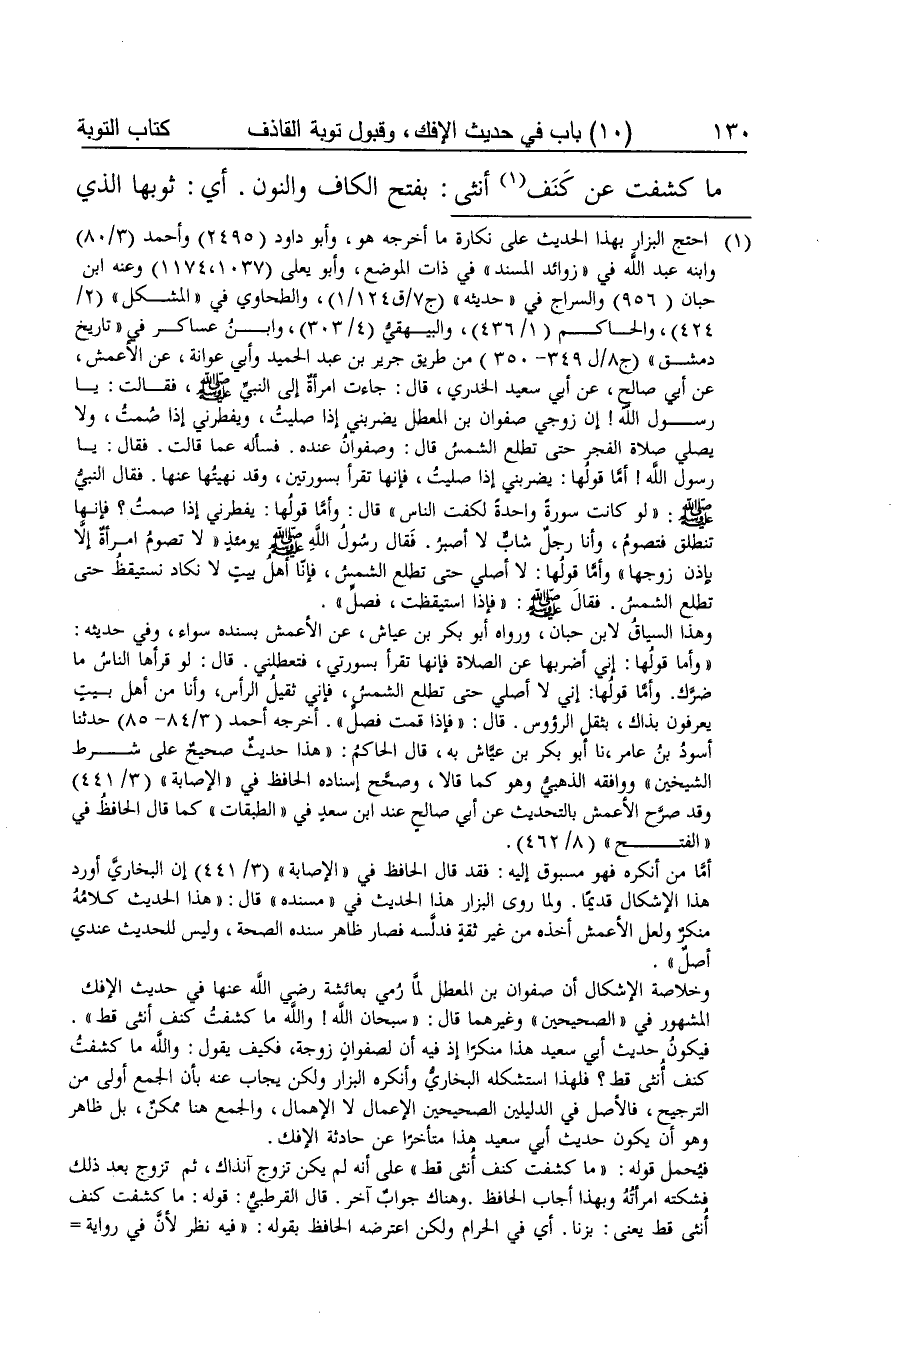 ١٣٠ (١٠) باب في حديث الإفك ، وقبول توبة القاذف كتاب التوبة
ما كشفت عن كَنَف(١) أنثى : بفتح الكاف والنون . أي : ثوبها الذي
(١) احتج البزار بهذا الحديث على نكارة ما أخرجه هو ، وأبو داود ( ٢٤٩٥) وأحمد (٨٠/٣)
وابنه عبد اللَّه في « زوائد المسند» في ذات الموضع ، وأبو يعلى (١٠٣٧، ١١٧٤) وعنه ابن
حبان ( ٩٥٦) والسراج في « حديثه » (ج٧/ق١/١٢٤)، والطحاوي في « المشكل » (٢/
٤٢٤) ، والحاكم ( ١/ ٤٣٦)، والبيهقيُّ ( ٤/ ٣٠٣)، وابنُ عساكر في « تاريخ
دمشق » (ج٨/ل ٣٤٩- ٣٥٠ ) من طريق جرير بن عبد الحميد وأبي عوانة ، عن الأعمش ،
عن أبي صالح ، عن أبي سعيد الخدري ، قال : جاءت امرأةٌ إلى النبيِّ ﷺ ، فقالت : يا
رسول اللَّه ! إن زوجي صفوان بن المعطل يضربني إذا صليتُ ، ويفطرني إذا صُمتُ ، ولا
يصلي صلاة الفجر حتى تطلع الشمسُ قال : وصفوانُ عنده . فسأله عما قالت . فقال : يا
رسول اللَّه ! أمَّا قولُها : يضربني إذا صليتُ ، فإنها تقرأ بسورتين ، وقد نهيتُها عنها . فقال النبيُّ
ﷺ : « لو كانت سورةً واحدةً لكفت الناس » قال : وأمَّا قولُها : يفطرني إذا صمتُ ؟ فإنها
تنطلق فتصومُ ، وأنا رجلٌ شابٌّ لا أصبرُ . فَقال رسُولُ اللَّهِ ﷺ يومئذٍ « لا تصومُ امرأةٌ إلَّا
بإذن زوجها » وأمَّا قولُها : لا أصلي حتى تطلع الشمسُ ، فإنَّا أهلُ بيتٍ لا نكاد نستيقظُ حتى
تطلع الشمسُ . فقالَ ﷺ : « فإذا استيقظت ، فصلِّ » .
وهذا السياقُ لابن حبان ، ورواه أبو بكر بن عياش ، عن الأعمش بسنده سواء ، وفي حديثه :
« وأما قولُها : إني أضربها عن الصلاة فإنها تقرأ بسورتي ، فتعطلني . قال : لو قرأها الناسُ ما
ضرَّك. وأمَّا قولُها: إني لا أصلي حتى تطلع الشمسُ ، فإني ثقيلُ الرأس، وأنا من أهل بيتٍ
يعرفون بذاك ، بثقل الرؤوس . قال : « فإذا قمت فصلِّ » . أخرجه أحمد (٨٤/٣- ٨٥) حدثنا
أسودُ بنُ عامر ،نا أبو بكر بن عيَّاش به ، قال الحاكمُ : « هذا حديثٌ صحيحٌ على شرط
الشيخين » ووافقه الذهبيُّ وهو كما قالا ، وصحَّح إسناده الحافظ في « الإصابة » (٣/ ٤٤١)
وقد صرَّح الأعمش بالتحديث عن أبي صالحٍ عند ابن سعدٍ في « الطبقات » كما قال الحافظُ في
« الفتح » (٨/ ٤٦٢) .
أمَّا من أنكره فهو مسبوق إليه : فقد قال الحافظ في « الإصابة » (٣/ ٤٤١) إن البخاريَّ أورد
هذا الإشكال قديمًا . ولما روى البزار هذا الحديث في « مسنده » قال : « هذا الحديث كلامُهُ
منكرٌ ولعل الأعمش أخذه من غير ثقةٍ فدلَّسه فصار ظاهر سنده الصحة ، وليس للحديث عندي
أصلٌ » .
وخلاصة الإشكال أن صفوان بن المعطل لمَّا رُمي بعائشة رضي اللَّه عنها في حديث الإفك
المشهور في « الصحيحين » وغيرهما قال : « سبحان اللَّه ! واللَّه ما كشفتُ كنف أنثى قط » .
فيكونُ حديث أبي سعيد هذا منكرًا إذ فيه أن لصفوانٍ زوجة، فكيف يقول : واللَّه ما كشفتُ
كنف أُنثى قط ؟ فلهذا استشكله البخاريُّ وأنكره البزار ولكن يجاب عنه بأن الجمع أولى من
الترجيح ، فالأصل في الدليلين الصحيحين الإعمال لا الإهمال ، والجمع هنا ممكنٌ ، بل ظاهر
وهو أن يكون حديث أبي سعيد هذا متأخرًا عن حادثة الإفك .
فيُحمل قوله : « ما كشفت كنف أُنثى قط » على أنه لم يكن تزوج آنذاك ، ثم تزوج بعد ذلك
فشكته امرأتُهُ وبهذا أجاب الحافظ .وهناك جوابٌ آخر . قال القرطبيُّ : قوله : ما كشفت كنف
أُنثى قط يعنى : بزنا . أي في الحرام ولكن اعترضه الحافظ بقوله : « فيه نظر لأنَّ في رواية =